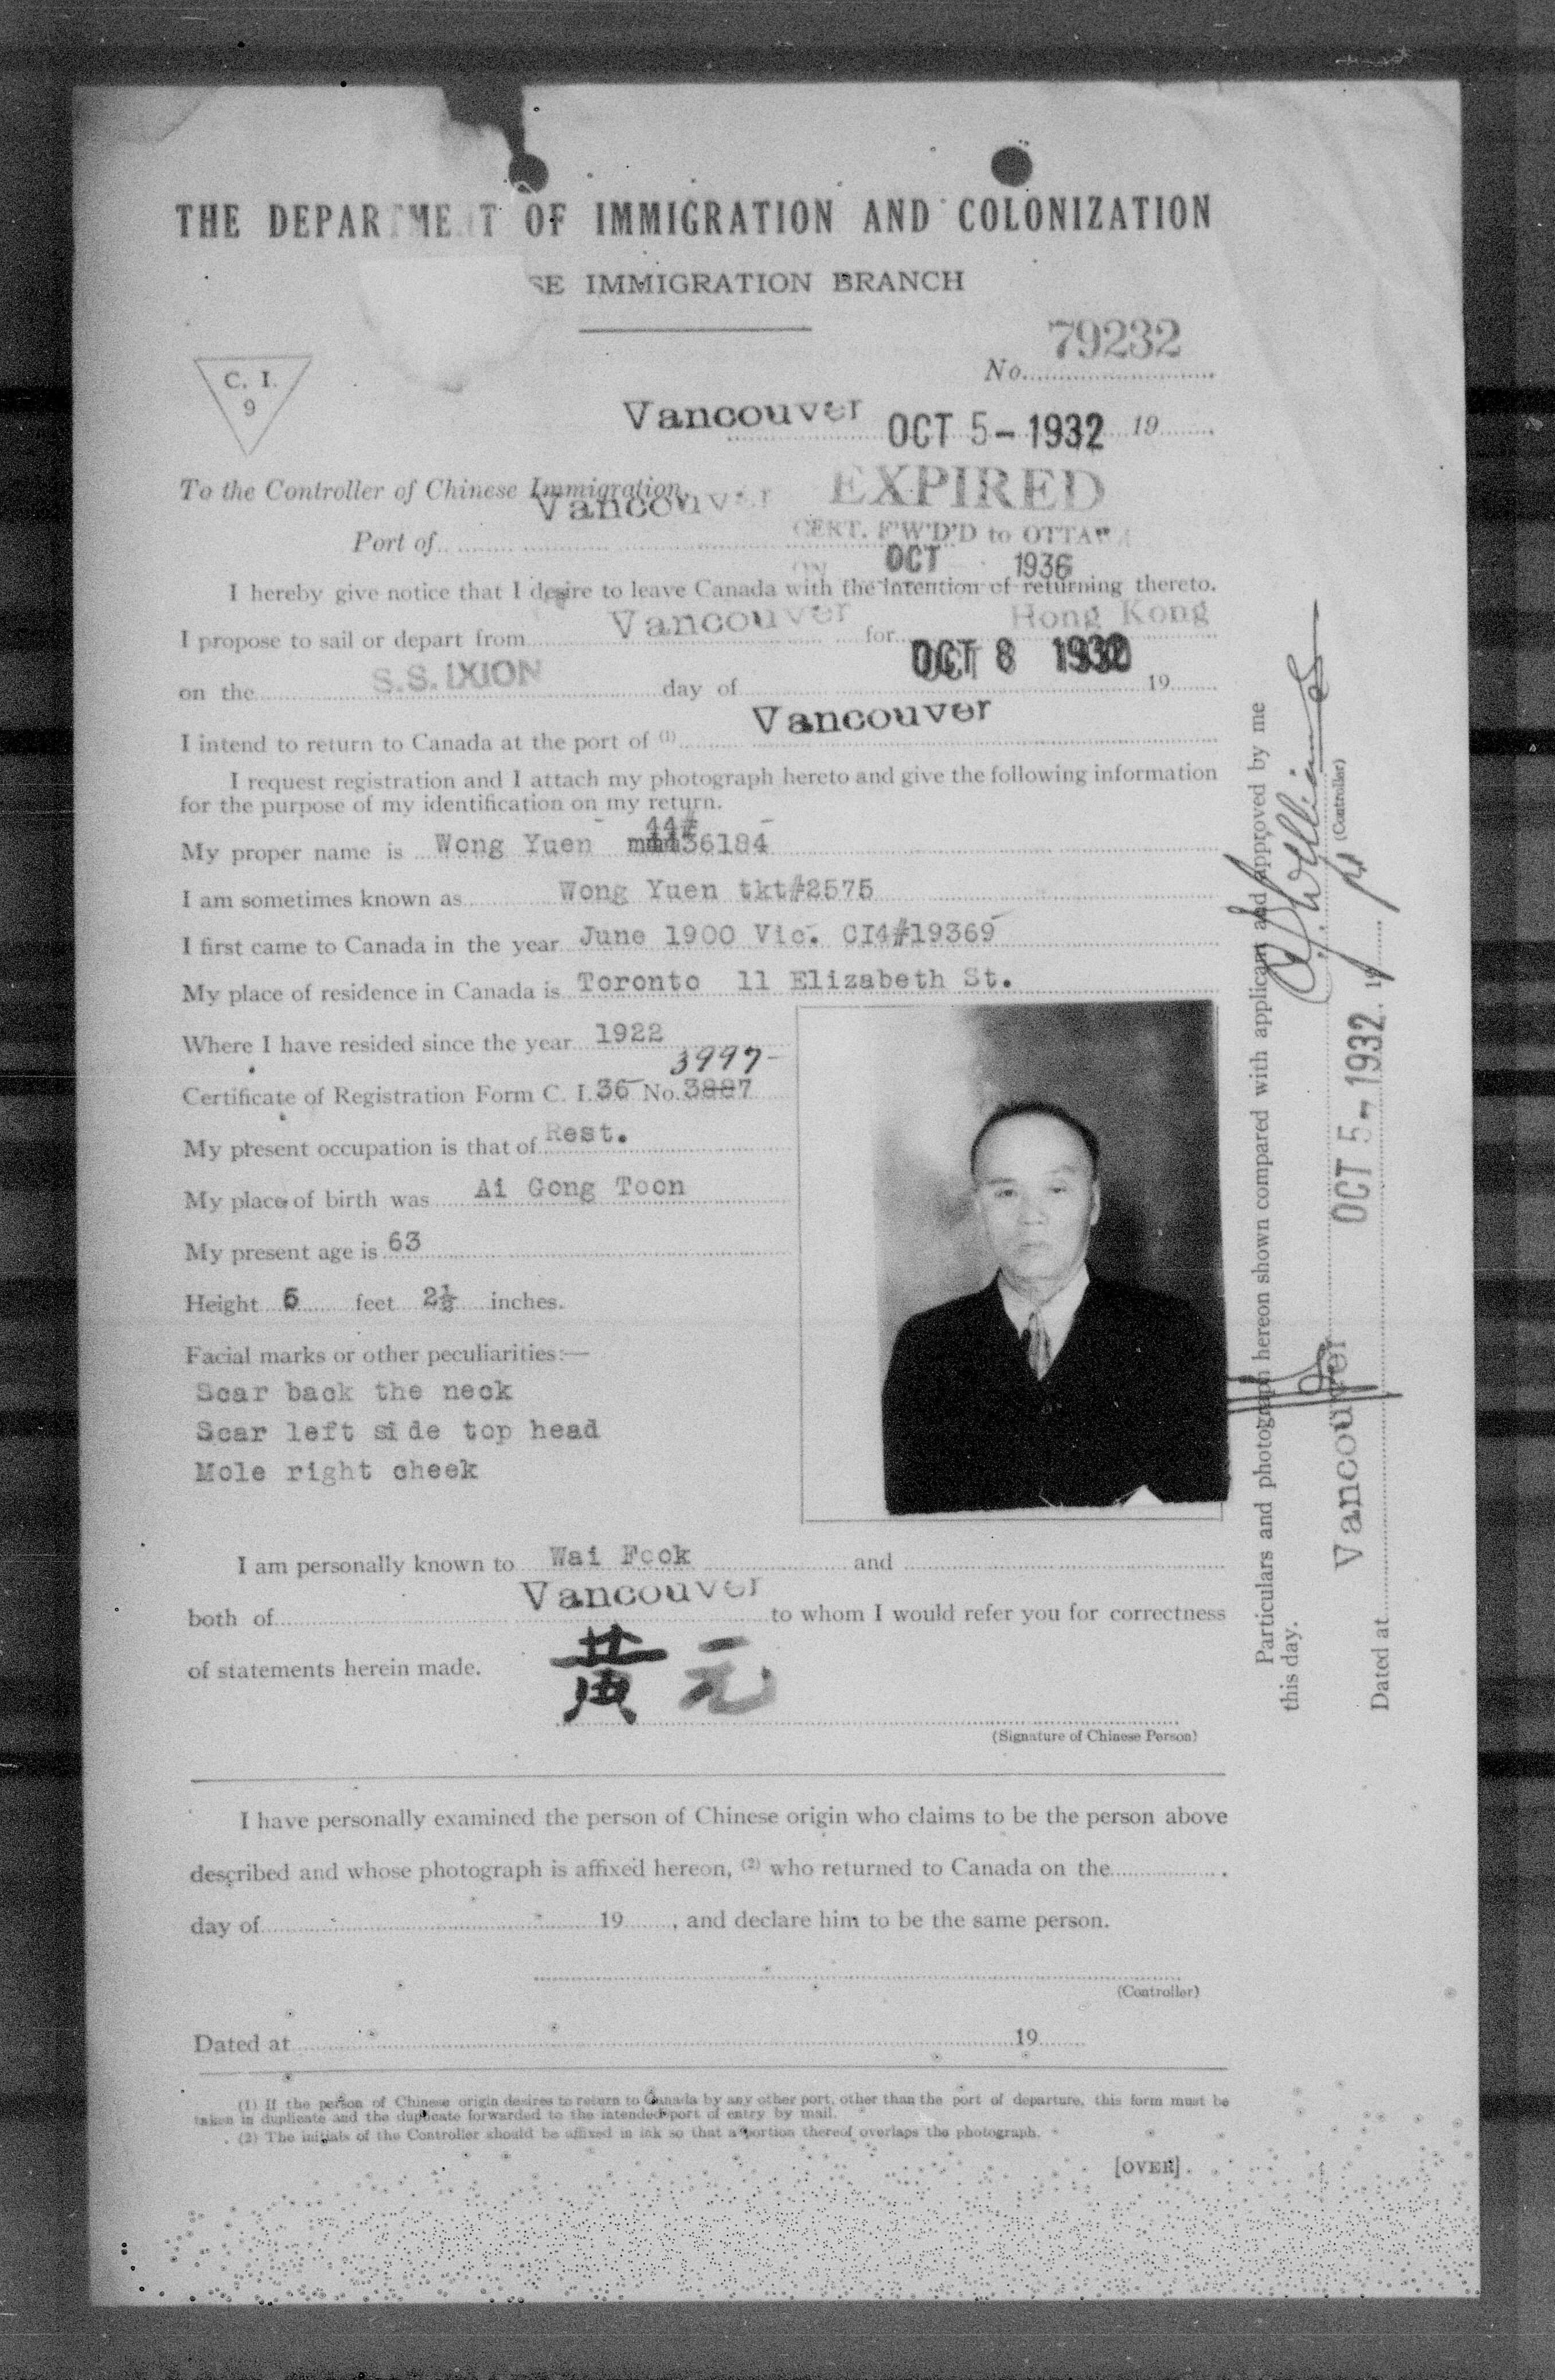 THE DEPARTME T OF IMMIGRATION AND COLONIZATION
SE IMMIGRATION BRANCH
79232
No.
C. I.
9
Vancouver OCT 5 - 1932 19
To the Controller of Chinese Immigration,
EXPIRED
Vancouver
CERT. F'W'D'D to OTTAWA
Port of
ON OCT 1936
I hereby give notice that I desire to leave Canada with the intention of returning thereto.
I propose to sail or depart from Vancouver for Hong Kong
on the S.S. IXION day of OCT 8 19
I intend to return to Canada at the port of (1) Vancouver
I request registration and I attach my photograph hereto and give the following information
for the purpose of my identification on my return.
44#
My proper name is Wong Yuen 36184
I am sometimes known as Wong Yuen tkt#2575
I first came to Canada in the year June 1900 Vic. CI4#19369
My place of residence in Canada is Toronto 11 Elizabeth St.
Where I have resided since the year 1922
3997
Certificate of Registration Form C. I. 36 No. 3887
My present occupation is that of Rest.
My place of birth was Ai Gong Toon
My present age is 63
Height 5 feet 2½ inches.
Facial marks or other peculiarities:—
Scar back the neck
Scar left side top head
Mole right cheek
I am personally known to Wai Fook and
both of Vancouver to whom I would refer you for correctness
of statements herein made.
黃元
(Signature of Chinese Person)
I have personally examined the person of Chinese origin who claims to be the person above
described and whose photograph is affixed hereon, (2) who returned to Canada on the
day of 19 , and declare him to be the same person.
(Controller)
Dated at 19
(1) If the person of Chinese origin desires to return to Canada by any other port, other than the port of departure, this form must be
taken in duplicate and the duplicate forwarded to the intended port of entry by mail.
(2) The initials of the Controller should be affixed in ink so that a portion thereof overlaps the photograph.
[OVER]
Particulars and photograph hereon shown compared with applicant and approved by me
this day.
(Controller)
Dated at Vancouver OCT 5 - 1932 19